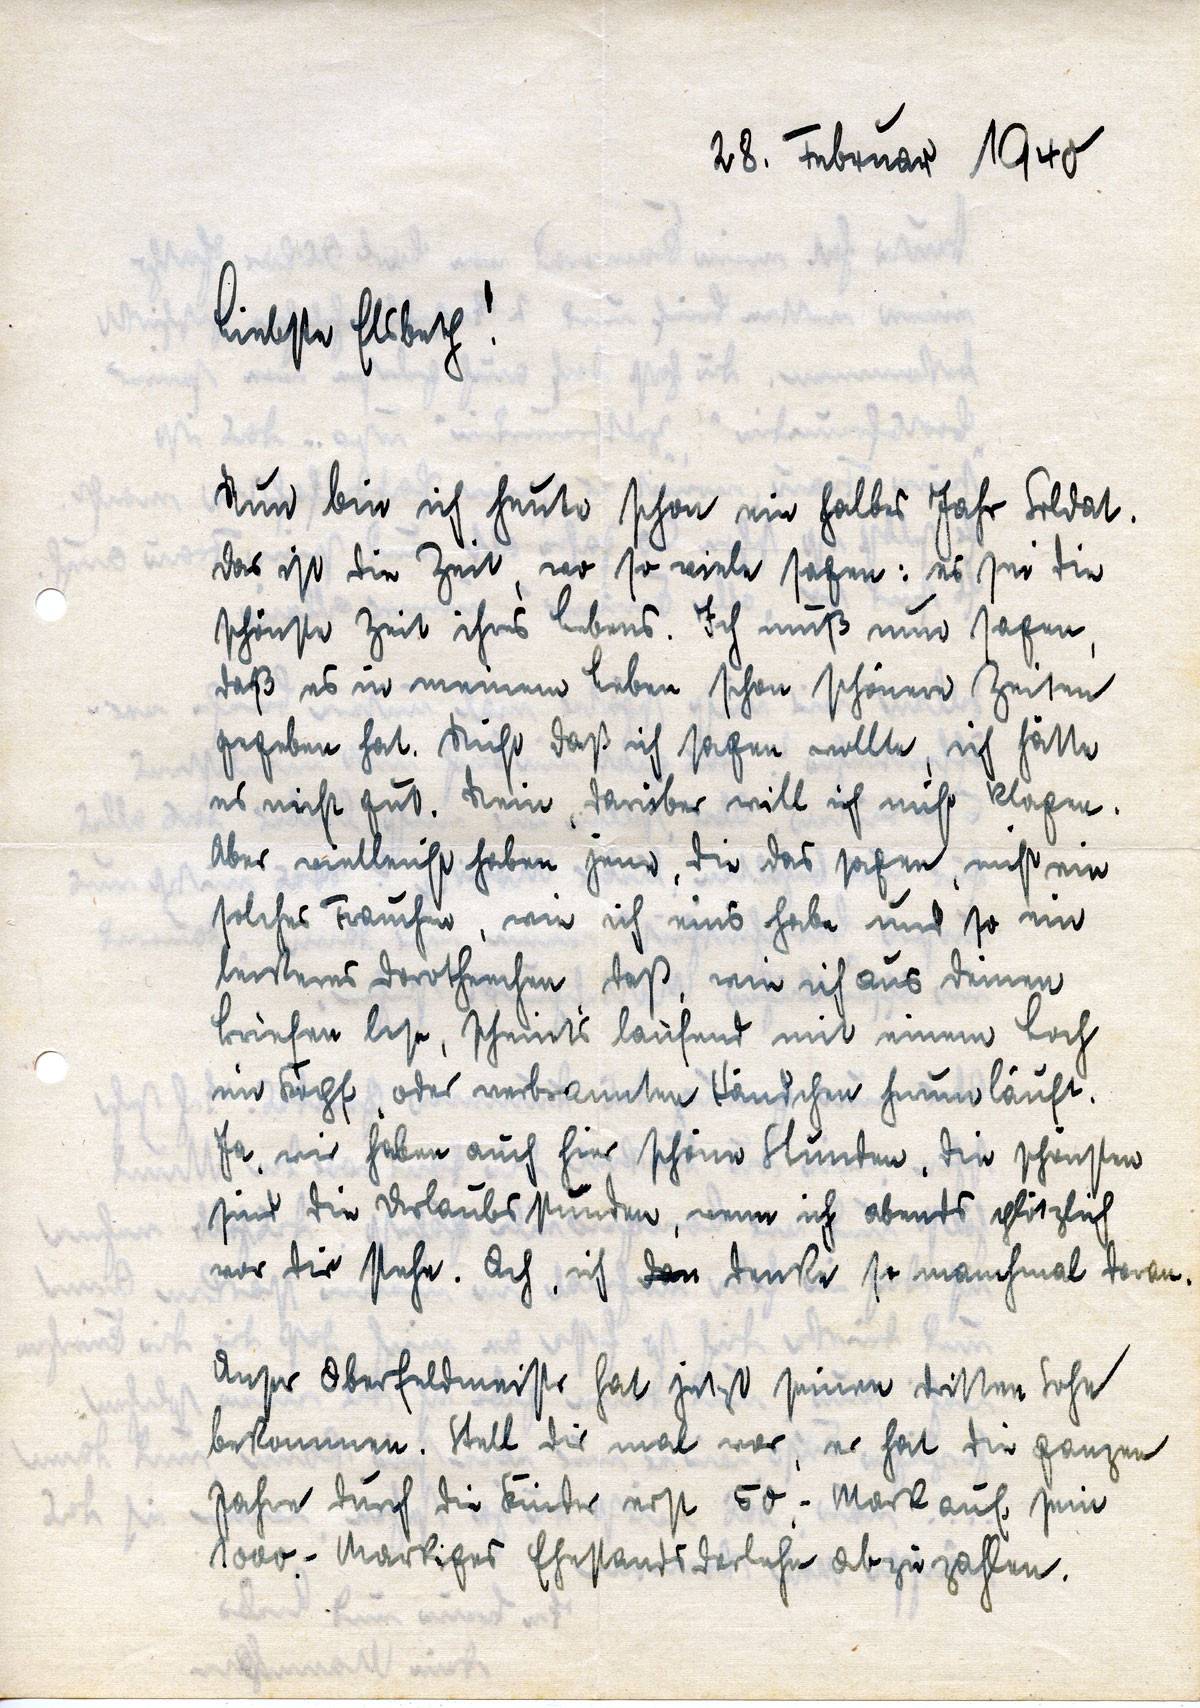 28. Februar 1940
Liebste Elsbeth!
Nun bin ich heute schon ein halbes Jahr Soldat.
Das ist die Zeit, wo so viele sagen: es sei die
schönste Zeit ihres Lebens. Ich muß nun sagen,
daß es in meinem Leben schon schönere Zeiten
gegeben hat. Nicht daß ich sagen wollte, ich hätte
es nicht gut. Nein, darüber will ich nicht klagen.
Aber vielleicht haben jene, die das sagen, nicht ein
solches Frauchen, wie ich eins habe und so ein
leckeres Dorotheechen, daß, wie ich aus Deinen
Briefen lese, scheint's laufend mit einem Loch
im Kopf, oder verbrannten Händchen herumläuft.
Ja, wir haben auch hier schöne Stunden, die schönsten
sind die Urlaubsstunden, wenn ich abends plötzlich
vor dir stehe. Ach, ich denke so manchmal daran.
Unser Oberfeldmeister hat jetzt seinen dritten Sohn
bekommen. Stell dir mal vor, er hat die ganzen
Jahre durch die Kinder erst 50,- Mark auf sein
1000,- Markiges Ehestandsdarlehn abzuzahlen.